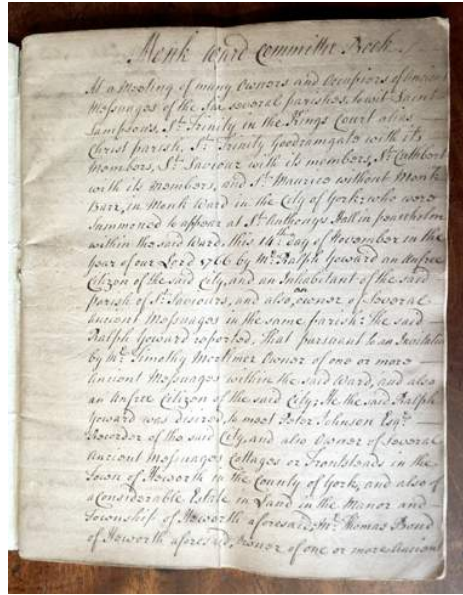 Monk Ward Committee Book
At a Meeting of many Owners and Occupiers of Ancient
Messuages of the Six several parishes, to wit, Saint
Sampsons, St. Trinity in the Kings Court alias
Christ parish, St. Trinity Goodramgate with its
Members, St. Saviour with its members, St. Cuthbert
with its members, and St. Maurice without Monk
Barr, in Monk Ward in the City of York; who were
Summoned to appear at St. Anthonys Hall in peaseholm
within the said Ward, this 14th day of November in the
Year of our Lord 1766 by Mr. Ralph Yoward an Unfree
Citizen of the said City, and an Inhabitant of the said
Parish of St. Saviours, and also an owner of several
Ancient Messuages in the same parish: The said
Ralph Yoward reported, That pursuant to an Invitation
by Mr. Timothy Mortimer Owner of one or more
Ancient Messuages within the said Ward, and also
an Unfree Citizen of the said City, He the said Ralph
Yoward was desired, to meet Peter Johnson Esqr.
Recorder of the said City, and also Owner of several
Ancient Messuages Cottages or Frontsteads in the
Town of Heworth in the County of York, and also of
a Considerable Estate in Land in the Manor and
Township of Heworth aforesaid, Mr. Thomas Bond
of Heworth aforesaid, Owner of one or more Ancient